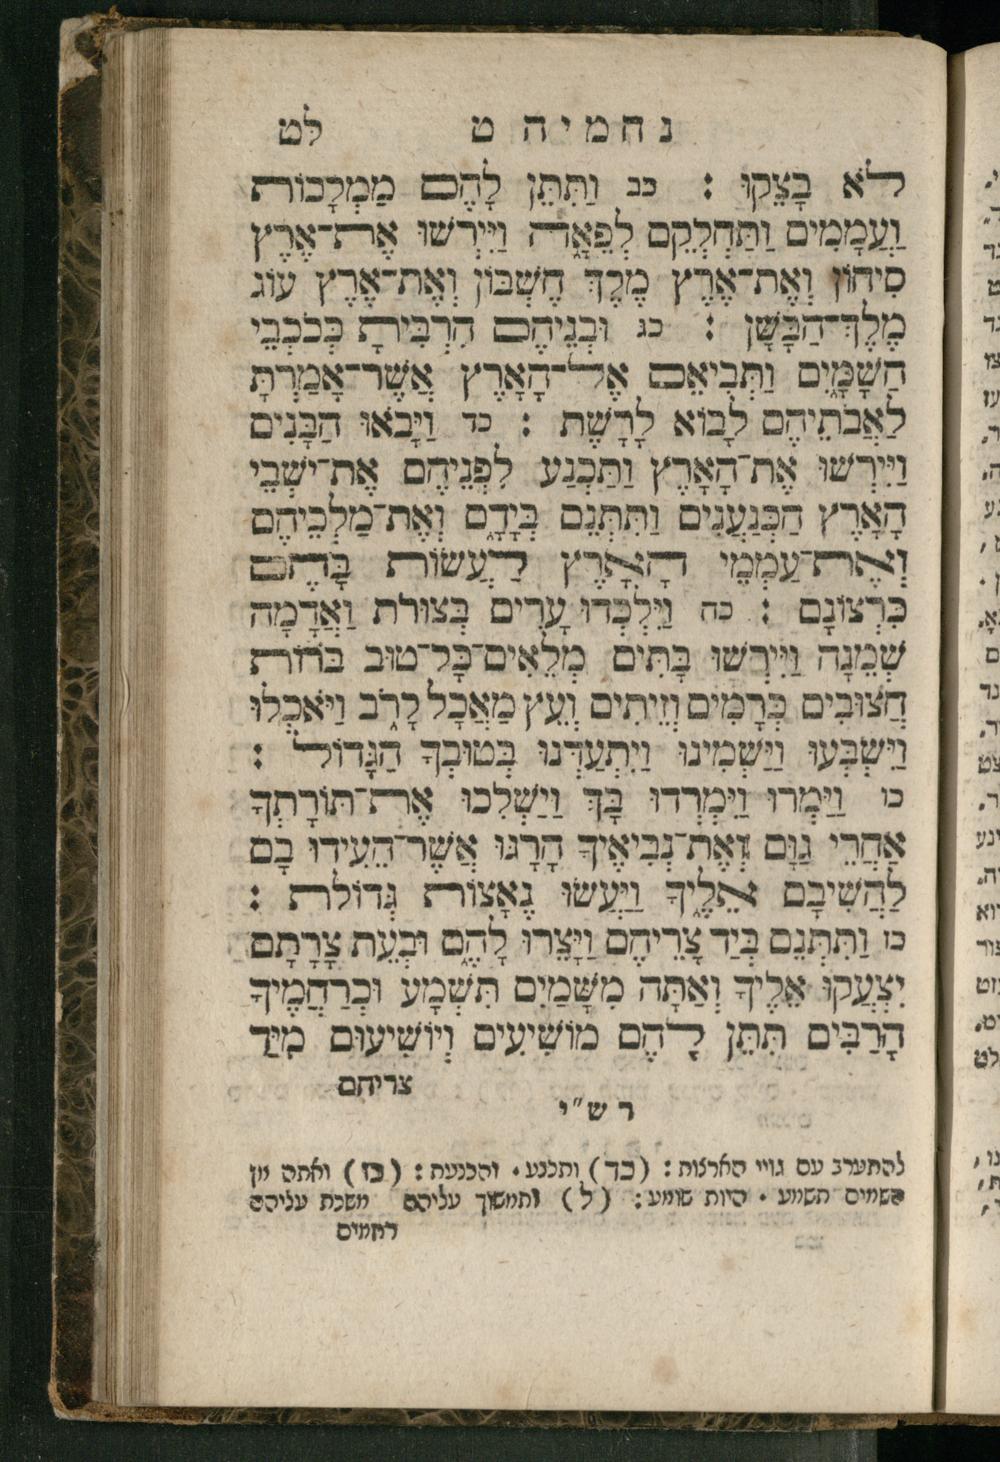 נחמיה ט לט
לֹא בָצֵקוּ : כב וַתִּתֵּן לָהֶם מַמְלָכוֹת
וַעֲמָמִים וַתַּחְלְקֵם לְפֵאָה וַיִּירְשׁוּ אֶת־אֶרֶץ
סִיחוֹן וְאֶת־אֶרֶץ מֶלֶךְ חֶשְׁבּוֹן וְאֶת־אֶרֶץ עוֹג
מֶלֶךְ־הַבָּשָׁן : כג וּבְנֵיהֶם הִרְבִּיתָ כְּכֹכְבֵי
הַשָּׁמָיִם וַתְּבִיאֵם אֶל־הָאָרֶץ אֲשֶׁר־אָמַרְתָּ
לַאֲבֹתֵיהֶם לָבוֹא לָרָשֶׁת : כד וַיָּבֹאוּ הַבָּנִים
וַיִּירְשׁוּ אֶת־הָאָרֶץ וַתַּכְנַע לִפְנֵיהֶם אֶת־יֹשְׁבֵי
הָאָרֶץ הַכְּנַעֲנִים וַתִּתְּנֵם בְּיָדָם וְאֶת־מַלְכֵיהֶם
וְאֶת־עַמְמֵי הָאָרֶץ לַעֲשׂוֹת בָּהֶם
כִּרְצוֹנָם : כה וַיִּלְכְּדוּ עָרִים בְּצוּרֹת וַאֲדָמָה
שְׁמֵנָה וַיִּירְשׁוּ בָּתִּים מְלֵאִים־כָּל־טוּב בֹּרוֹת
חֲצוּבִים כְּרָמִים וְזֵיתִים וְעֵץ מַאֲכָל לָרֹב וַיֹּאכְלוּ
וַיִּשְׂבְּעוּ וַיַּשְׁמִינוּ וַיִּתְעַדְּנוּ בְּטוּבְךָ הַגָּדוֹל :
כו וַיַּמְרוּ וַיִּמְרְדוּ בָּךְ וַיַּשְׁלִכוּ אֶת־תּוֹרָתְךָ
אַחֲרֵי גַוָּם וְאֶת־נְבִיאֶיךָ הָרָגוּ אֲשֶׁר־הֵעִידוּ בָם
לַהֲשִׁיבָם אֵלֶיךָ וַיַּעֲשׂוּ נֶאָצוֹת גְּדוֹלֹת :
כז וַתִּתְּנֵם בְּיַד צָרֵיהֶם וַיָּצֵרוּ לָהֶם וּבְעֵת צָרָתָם
יִצְעֲקוּ אֵלֶיךָ וְאַתָּה מִשָּׁמַיִם תִּשְׁמָע וּכְרַחֲמֶיךָ
הָרַבִּים תִּתֵּן לָהֶם מוֹשִׁיעִים וְיוֹשִׁיעוּם מִיַּד
צריהם
רש"י
להתערב עם גויי הארצות : (כד) ותכנע . והכנעת : (כז) ואתה מן
השמים תשמע . היות שומע : (ל) ותמשוך עליהם משכת עליהם
רחמים